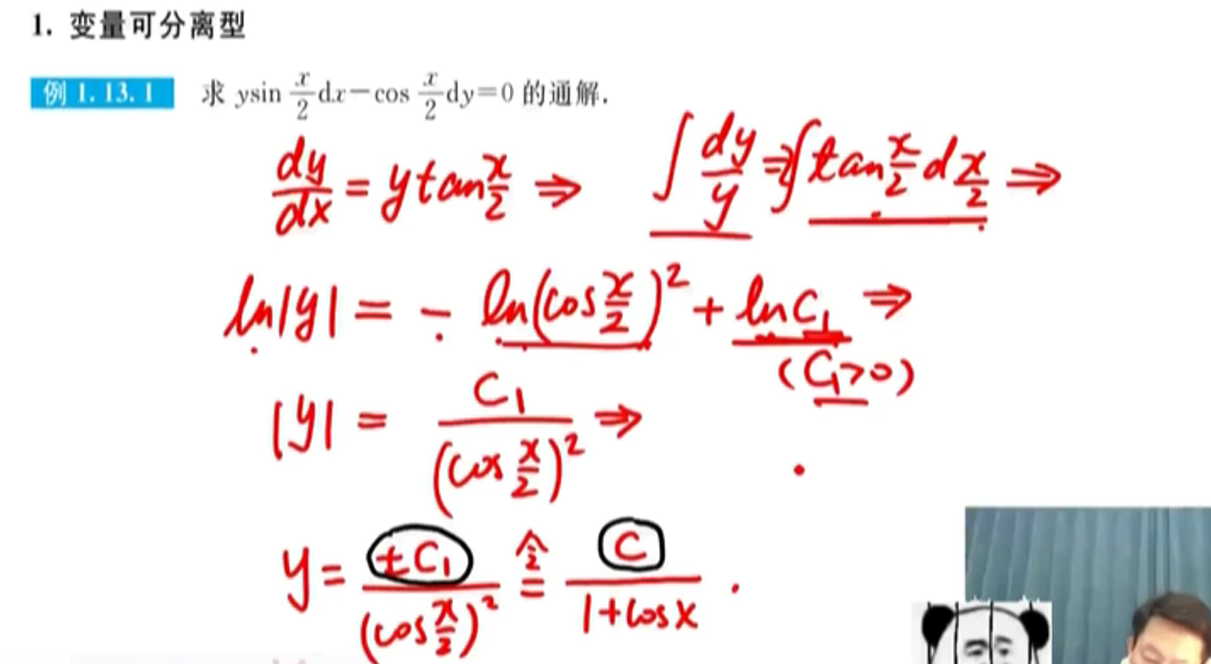 1. 变量可分离型
例 1.13.1 求 ysin x/2 dx−cos x/2 dy=0 的通解.
dy/dx = y tan x/2 ⇒ ∫ dy/y = 2∫ tan x/2 d x/2 ⇒
ln|y| = - ln(cos x/2)² + ln C₁ ⇒
(C₁>0)
|y| = C₁/(cos x/2)² ⇒
y = ±C₁/(cos x/2)² ≙ C/(1+cos x) .